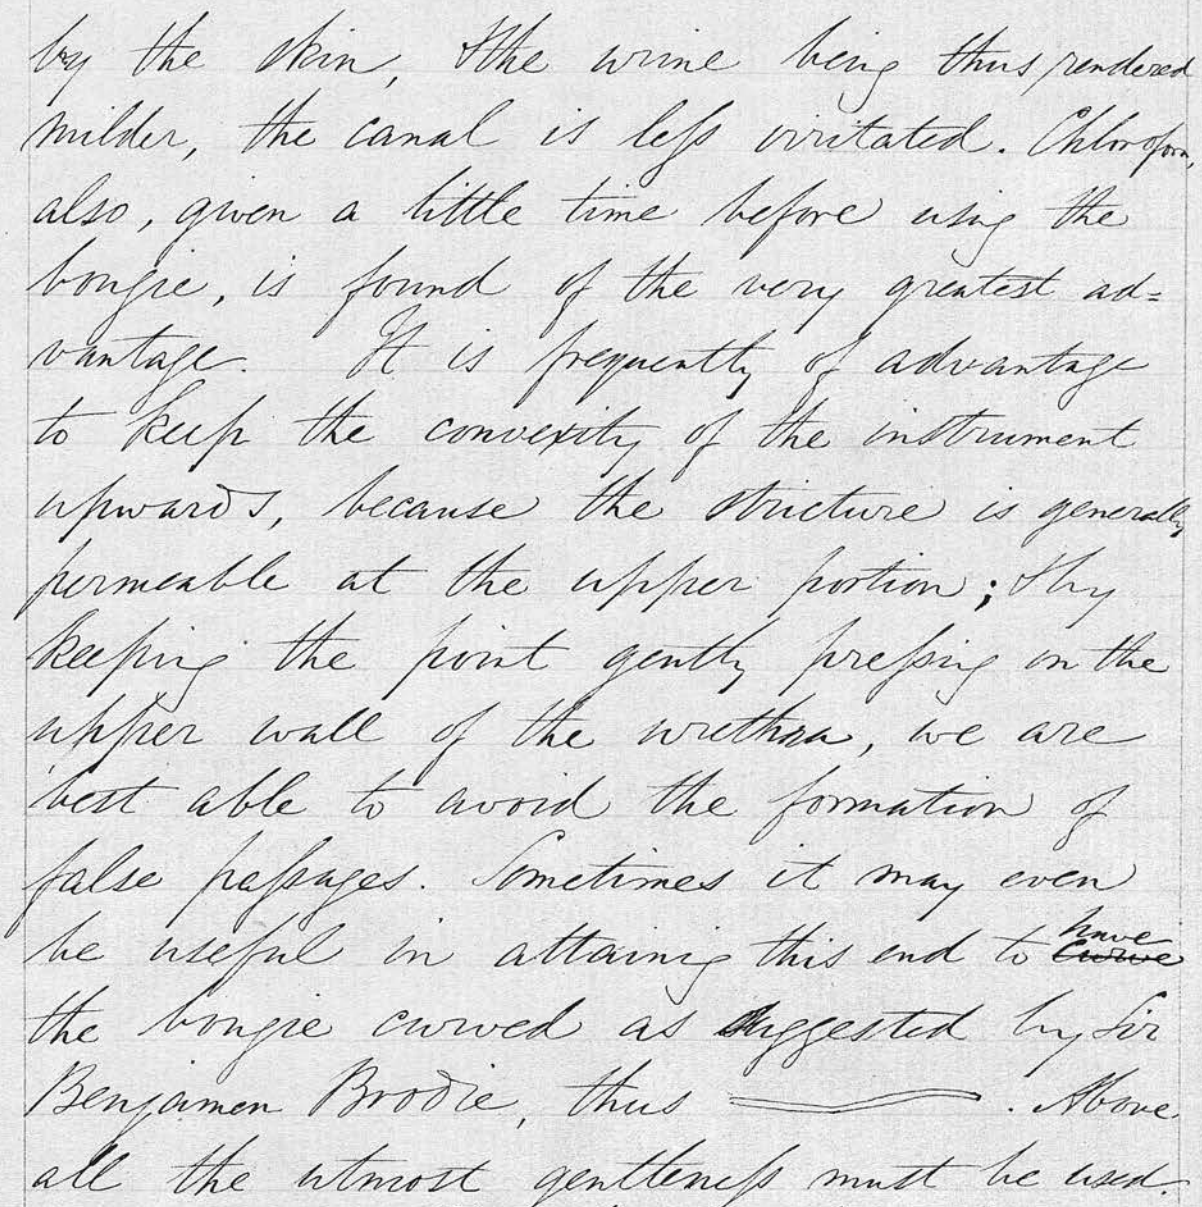 by the skin, & the urine being thus rendered
milder, the canal is less irritated. Chloroform,
also, given a little time before using the
bougie, is found of the very greatest ad=
vantage. It is frequently of advantage
to keep the convexity of the instrument
upwards, because the stricture is generally
permeable at the upper portion; & by
keeping the point gently pressing on the
upper wall of the urethra, we are
best able to avoid the formation of
false passages. Sometimes it may even
be useful in attaining this end to have
the bougie curved as suggested by Sir
Benjamen Brodie, thus . Above
all the utmost gentleness must be used.